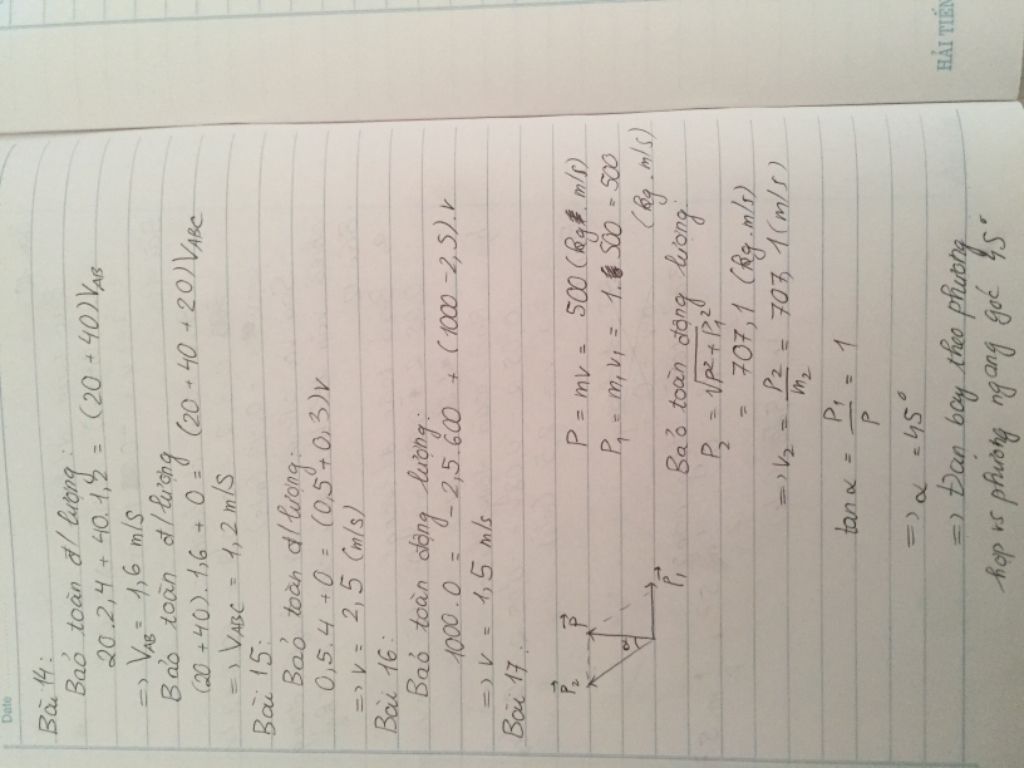 Date
Bài 14:
Bảo toàn đ/lượng:
20.2,4 + 40.1,2 = (20 + 40)V_AB
=> V_AB = 1,6 m/s
Bảo toàn đ/lượng
(20 + 40).1,6 + 0 = (20 + 40 + 20)V_ABC
=> V_ABC = 1,2 m/s
Bài 15:
Bảo toàn đ/lượng:
0,5.4 + 0 = (0,5 + 0,3)v
=> v = 2,5 (m/s)
Bài 16:
Bảo toàn động lượng:
1000.0 = -2,5.600 + (1000 - 2,5).v
=> v = 1,5 m/s
Bài 17:
P = mv = 500 (kg.m/s)
P₁ = m₁v₁ = 1.500 = 500
(kg.m/s)
Bảo toàn động lượng:
P₂ = √(P² + P₁²)
= 707,1 (kg.m/s)
=> v₂ = P₂/m₂ = 707,1 (m/s)
tan α = P₁/P = 1
=> α = 45°
=> Đạn bay theo phương
hợp vs phương ngang góc 45°
P₂ P
α
P₁
HẢI TIẾN